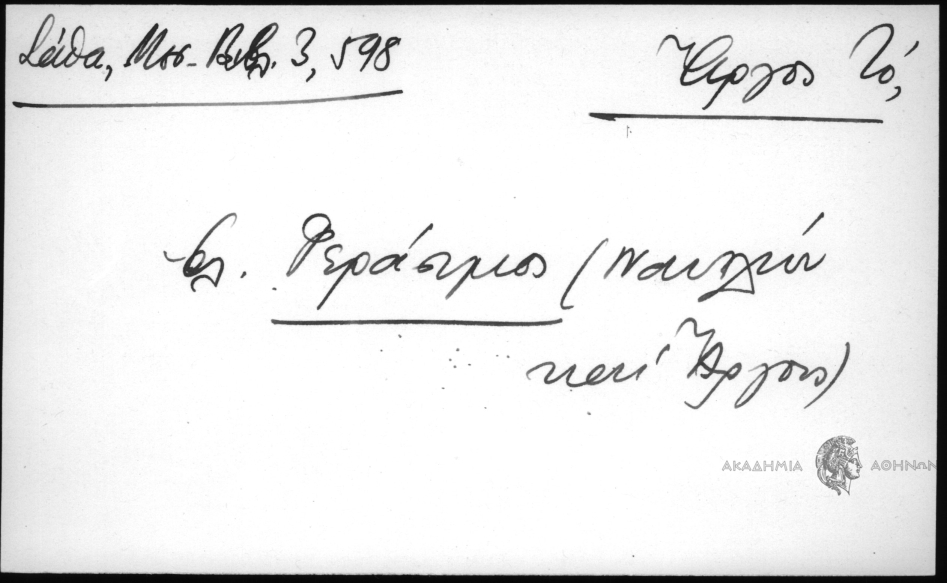 Σάθα, Μεσ. Βιβλ. 3, 598
Ἄργος τό,
βλ. Γεράσιμος (Ναυπλίου
καί Ἄργους)
ΑΚΑΔΗΜΙΑ ΑΘΗΝΩΝ